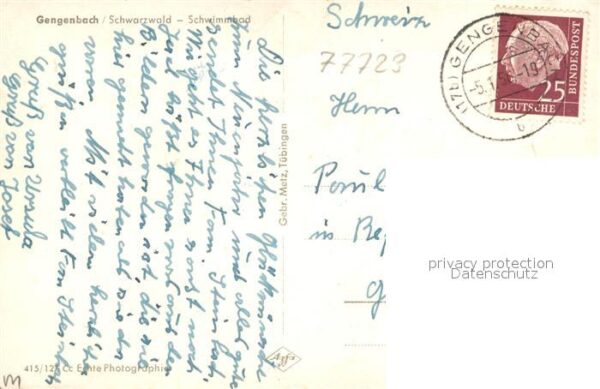 Gengenbach / Schwarzwald – Schwimmbad
Die herzlichsten Glückwünsche
zum Neuen Jahre und alles gute
sendet Ihnen Fam.
Wie geht es Ihnen sonst noch
was aus den
Bildern geworden ist, die sie
hir gemacht haben als sie da
waren. Mit vielen herzlichen
grüßen verbleibt Fam.
Gruß von Ursula
Gruß von Josef
415/12 cc Echte Photographie
Gebr. Metz, Tübingen
Agfa
Schweiz
77723
Herrn
Paul
in
(17b) GENGENBA
-5.1.
DEUTSCHE
BUNDESPOST
25
b
privacy protection
Datenschutz
M